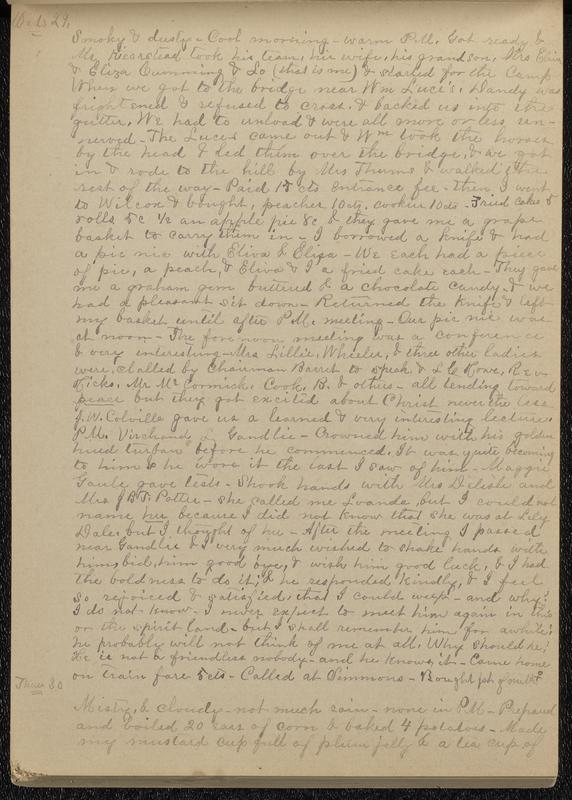 29.
Smoky & dusty - Cool morning - warm P.M. Got ready &
Mr. took his team, his wife, his grandson, Mrs Eliva
& Eliza Cumming & Lo (that is me) & started for the Camp
When we got to the bridge near Wm Luce's, Dandy was
frightened & refused to cross, & backed us into the
gutter, We had to unload & were all more or less un-
nerved - The Luces came out & Wm took the horses
by the head & led them over the bridge, & we got
in & rode to the hill by Mrs Thums & walked the
rest of the way - Paid 15 cts entrance fee - then I went
to Wilcox & bought, peaches 10 cts, cookies 10 cts - Fried cakes &
rolls 5c 1/2 an apple pie 8c & they gave me a grape
basket to carry them in - I borrowed a knife & had
a pic nic with Eliva & Eliza - We each had a piece
of pie, a peach, & Eliva & I a fried cake each - They gave
me a graham gem buttered & a chocolate candy, & we
had a pleasant sit down - Returned the knife & left
my basket until after P.M. meeting - Our pic nic was
at noon - The forenoon meeting was a conference
& very interesting - Mrs Lillie, Wheeler, & three other ladies
were, called by Chairman Barret to speak & L. C. Howe, Rev
Hicks, Mr McCormick, Cook, B. & others - all tending toward
peace but they got excited about Christ never the less
J. W. Colville gave us a learned & very interesting lecture.
P.M. Virchand Gandhi - Crowned him with his golden
hued turban before he commenced. It was quite becoming
to him & he wore it the last I saw of him - Maggie
Gaule gave tests - Shook hands with Mrs Delishe and
Mrs B.T. Potter - she called me Lvanda, but I could not
name her because I did not know that she was at Lily
Dale, but I thought of her - After the meeting I passed
near Gandhi & I very much wished to shake hands with
him, bid him good bye, & wish him good luck, & I had
the boldness to do it; & he responded kindly, & I feel
so rejoiced & satisfied, that I could weep - and why?
I do not know - I never expect to meet him again in this
or the spirit land - but I shall remember him for awhile;
he probably will not think of me at all. Why should he?
He is not a friendless nobody - and he knows it - Came home
on train fare 5 cts - Called at Simmons - Bought pt of milk
Thurs 30
Misty, & cloudy - not much rain - none in P.M. - Prepared
and boiled 20 ears of corn & baked 4 potatoes - Made
my mustard cup full of plum jelly & a tea cup of